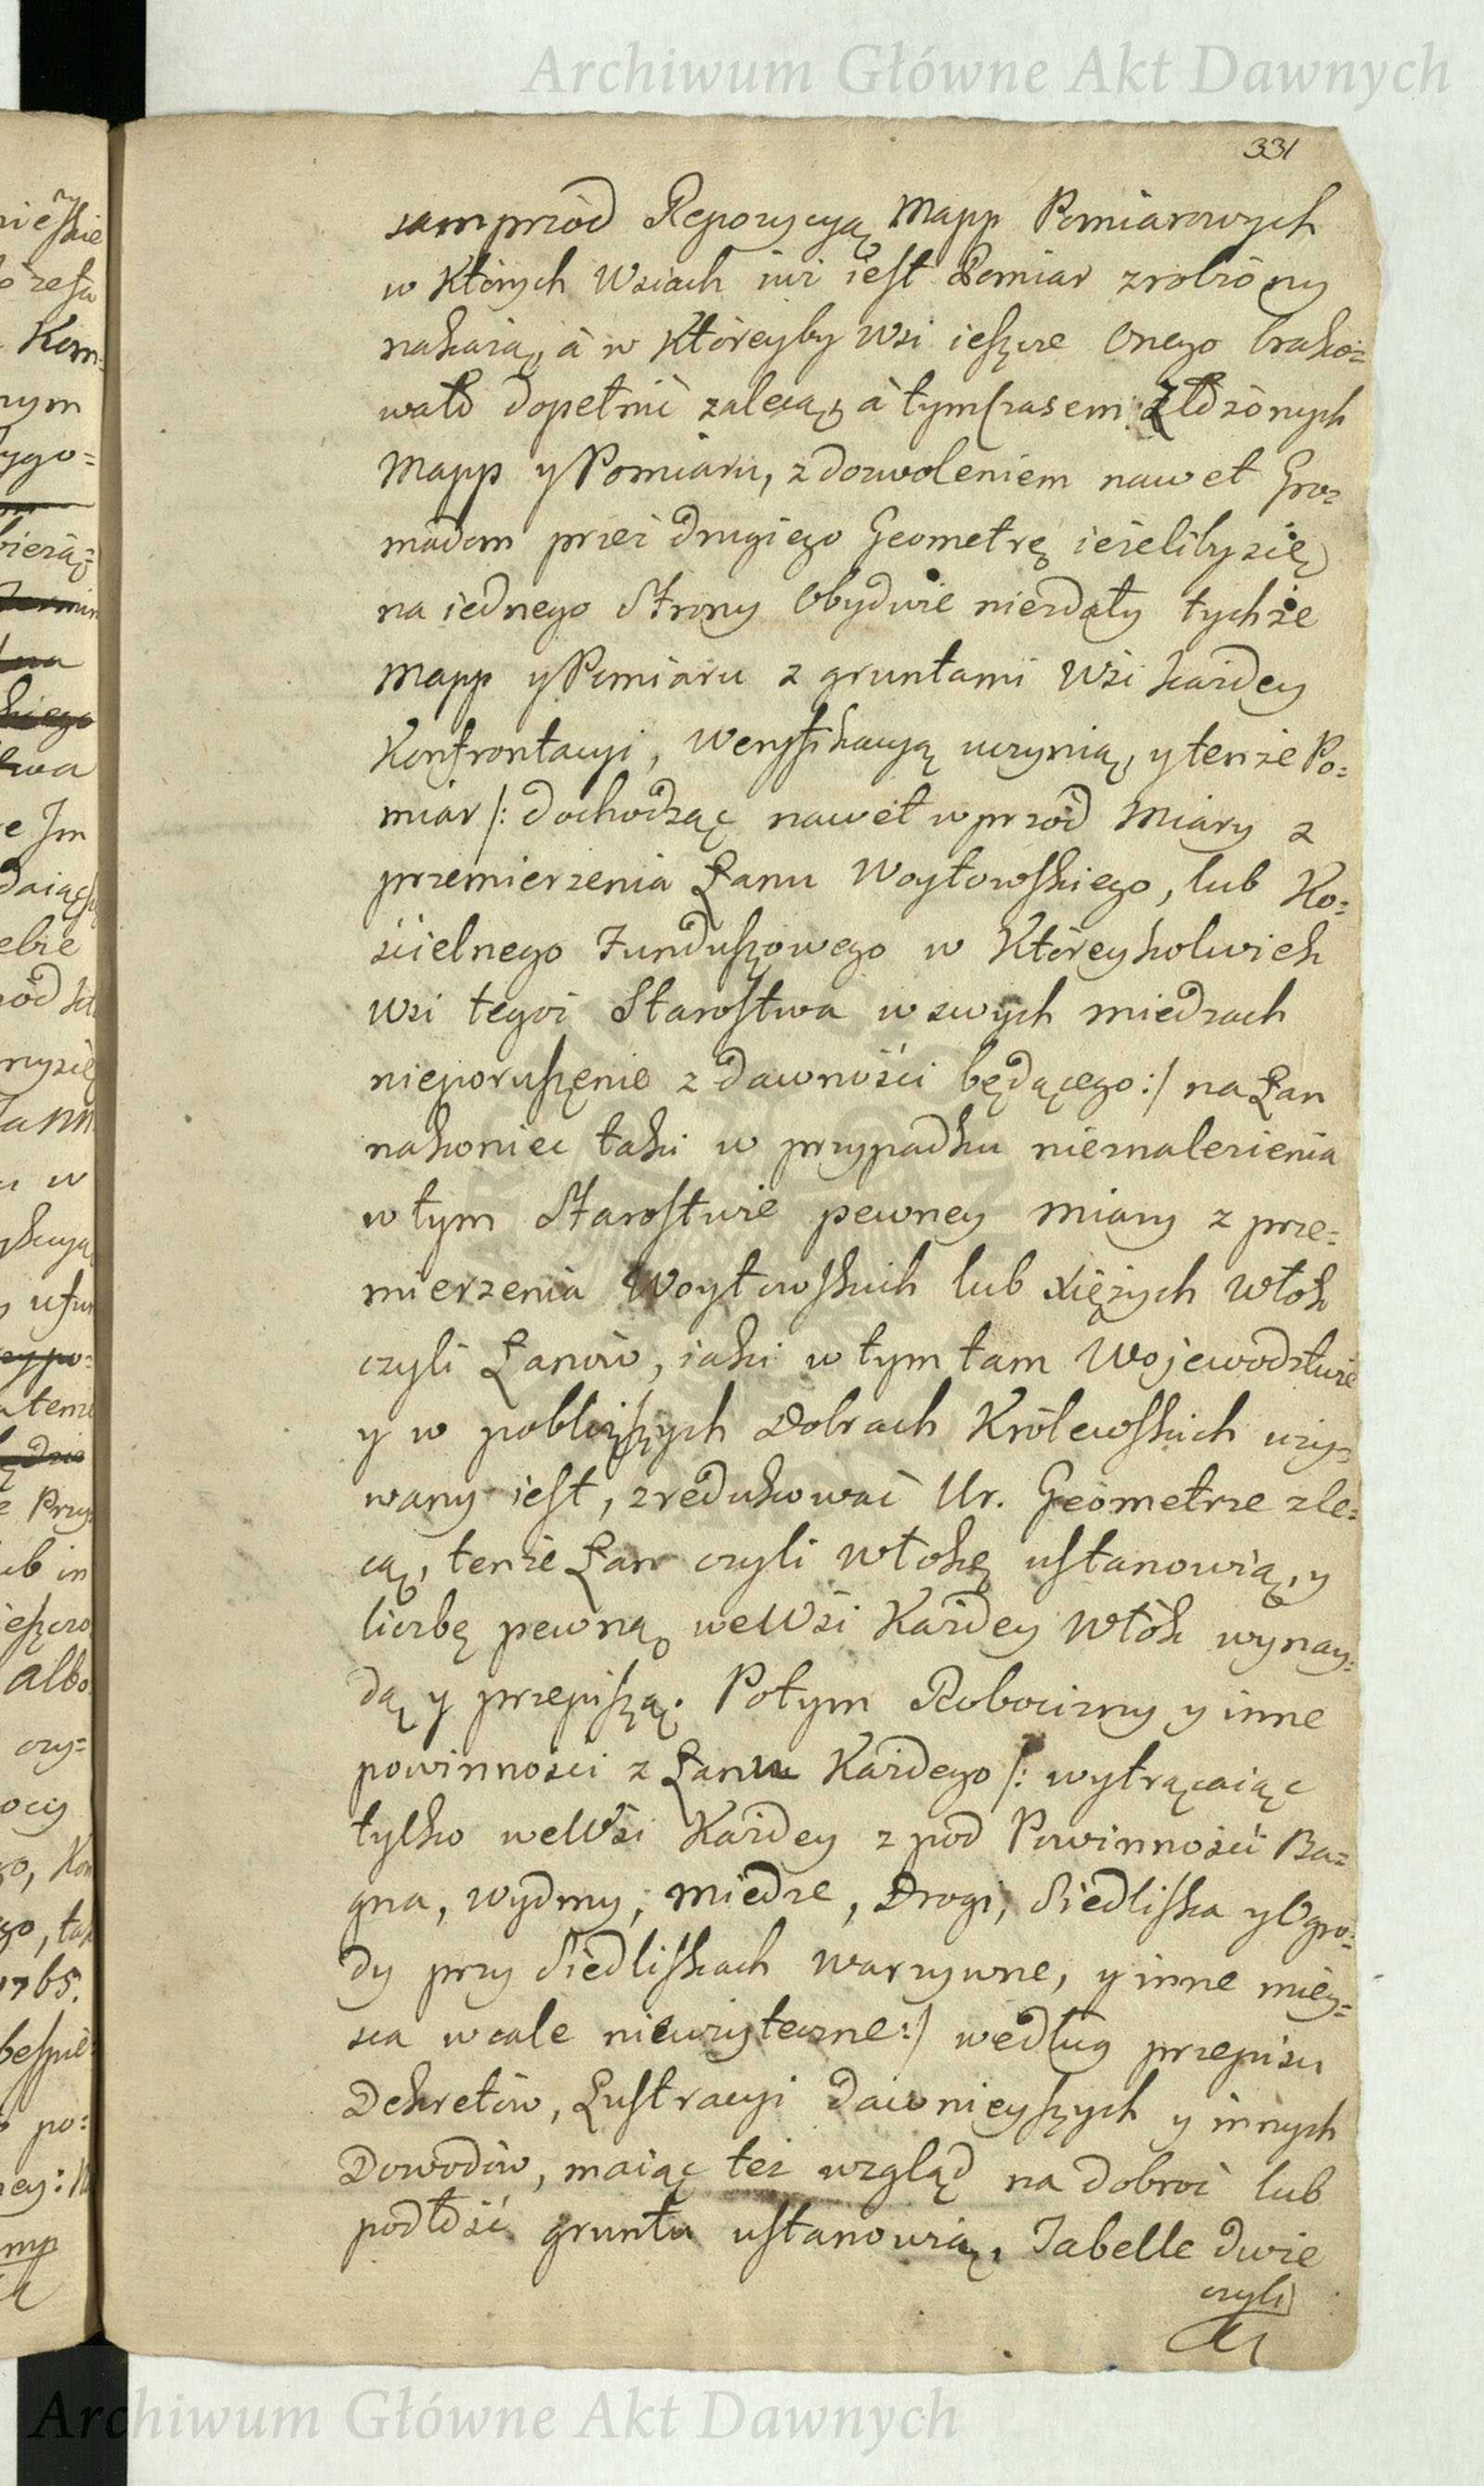 Archiwum Główne Akt Dawnych
331
samprzód Repozycyą Mapp Pomiarowych
w których Wsiach iuż iest Pomiar zrobióny
nakażą, á w któreyby Wsi ieszcze Onego brako=
wało dopełnić zalecą, á tymczasem złożónych
Mapp y Pomiaru, z dozwoleniem nawet Gro=
madom przez drugiego Geometrę ieżeliby się
na iednego Strony Obydwie niezdały tychże
Mapp y Pomiaru z gruntami Wsi każdey
Konfrontacyi, Weryfikacyą uczynią, y tenże Po=
miar /: dochodząc nawet wprzód Miary z
przemierzenia Łanu Woytowskiego, lub Ko=
ścielnego Funduszowego w któreykolwiek
Wsi tegoż Starostwa w swych miedzach
nieporuszenie z dawności będącego :/ na Łan
nakoniec taki w przypadku nieznalezienia
w tym Starostwie pewney miary z prze=
mierzenia Woytowskich lub Xiężych Włok
czyli Łanów, iaki w tym tam Wojewodztwie
y w pobliższych Dobrach Królewskich uży=
wany iest, zredukować Ur. Geometrze zle=
cą, tenże Łan czyli Włokę ustanowią, y
liczbę pewną we Wsi Każdey Włók wynay=
dą y przepiszą. Potym Robocizny y inne
powinności z Łanu Każdego /: wytrącaiąc
tylko we Wsi Każdey z pod Powinności Ba=
gna, Wydmy, Miedze, Drogi, Siedliska y Ogro=
dy przy Siedliskach warzywne, y inne miey=
sca wcale nieużyteczne :/ według przepisu
Dekretów, Lustracyi dawnieyszych y innych
Dowodów, maiąc też wzgląd na dobroć lub
podłość gruntu ustanowią, Tabelle dwie
czyli
Archiwum Główne Akt Dawnych